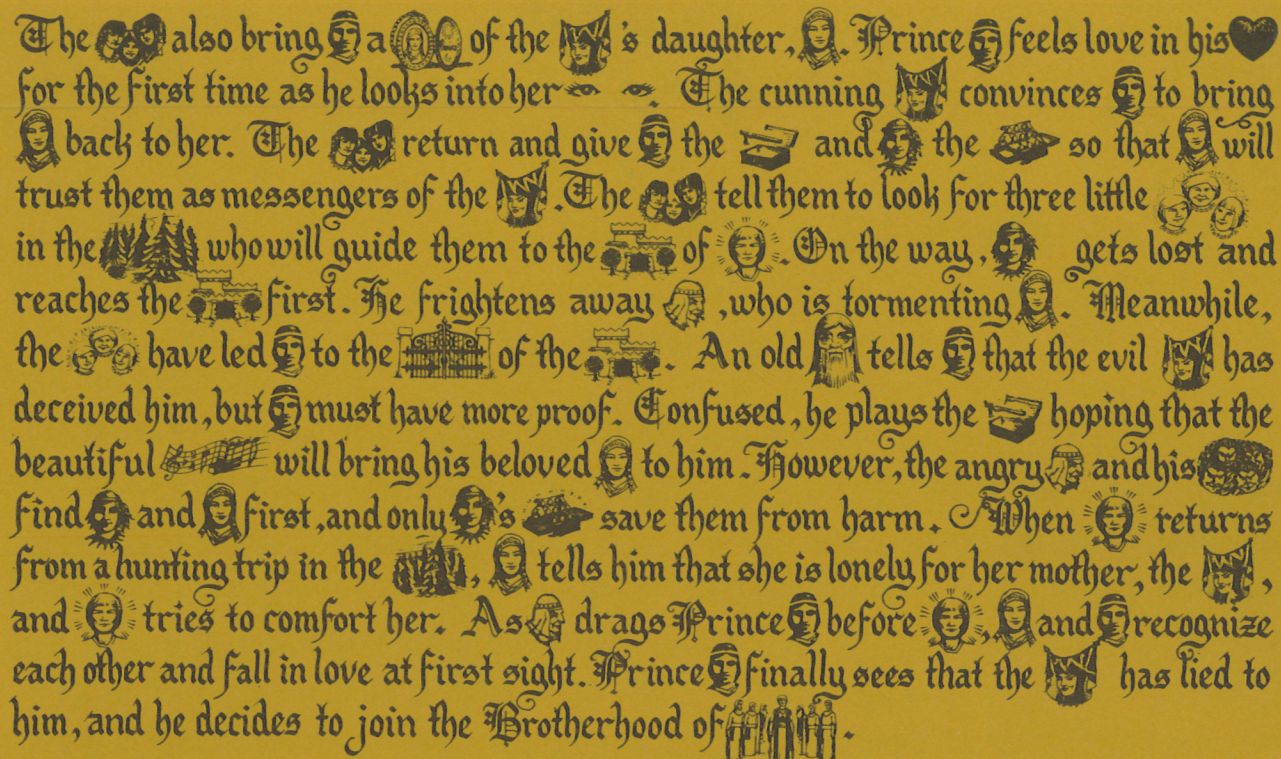 The also bring a of the 's daughter, . Prince feels love in his
for the first time as he looks into her . The cunning convinces to bring
back to her. The return and give the and the so that will
trust them as messengers of the . The tell them to look for three little
in the who will guide them to the of . On the way, gets lost and
reaches the first. He frightens away , who is tormenting . Meanwhile,
the have led to the of the . An old tells that the evil has
deceived him, but must have more proof. Confused, he plays the hoping that the
beautiful will bring his beloved to him. However, the angry and his
find and first, and only 's save them from harm. When returns
from a hunting trip in the , tells him that she is lonely for her mother, the ,
and tries to comfort her. As drags Prince before , and recognize
each other and fall in love at first sight. Prince finally sees that the has lied to
him, and he decides to join the Brotherhood of .